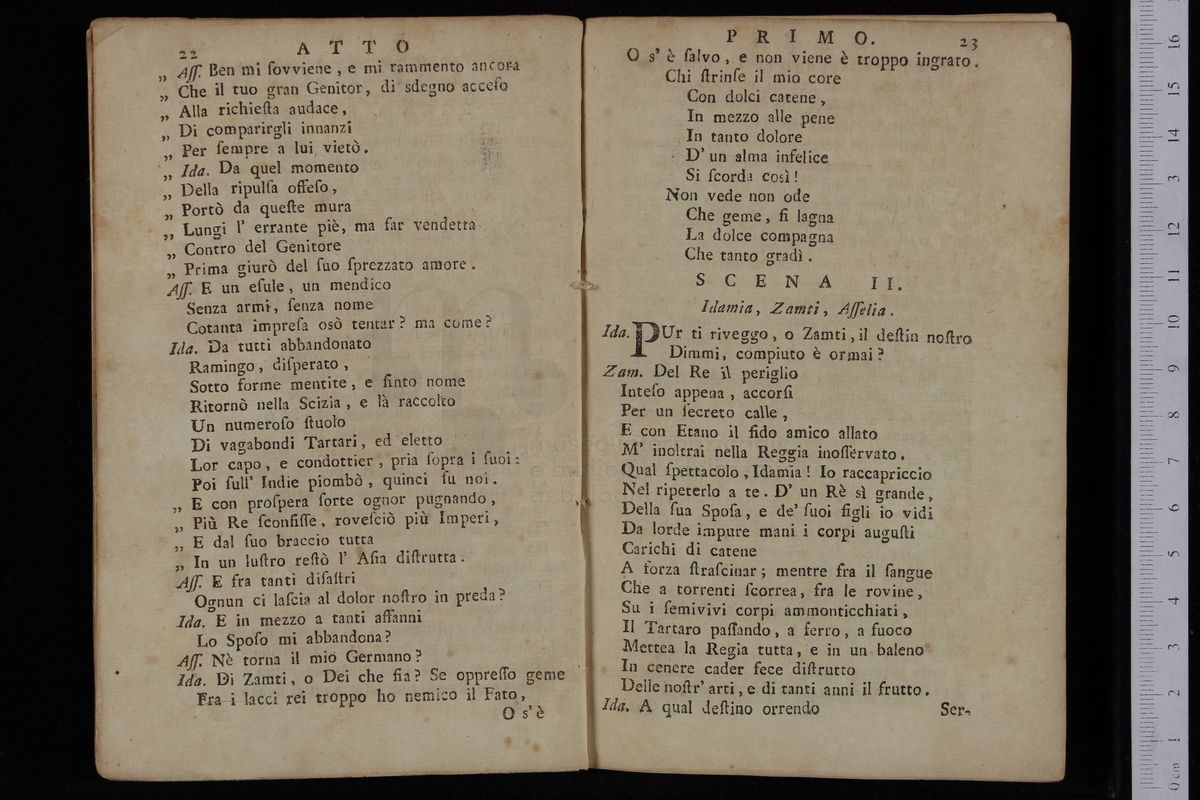 22 ATTO
„ Aſſ. Ben mi ſovviene, e mi rammento ancora
„ Che il tuo gran Genitor, di sdegno acceſo
„ Alla richieſta audace,
„ Di comparirgli innanzi
„ Per ſempre a lui vietò.
„ Ida. Da quel momento
„ Della ripulſa offeſo,
„ Portò da queſte mura
„ Lungi l' errante piè, ma far vendetta
„ Contro del Genitore
„ Prima giurò del ſuo ſprezzato amore.
Aſſ. E un eſule, un mendico
Senza armi, ſenza nome
Cotanta impreſa osò tentar? ma come?
Ida. Da tutti abbandonato
Ramingo, diſperato,
Sotto forme mentite, e finto nome
Ritornò nella Scizia, e là raccolto
Un numeroſo ſtuolo
Di vagabondi Tartari, ed eletto
Lor capo, e condottier, pria ſopra i ſuoi:
Poi ſull' Indie piombò, quinci ſu noi.
„ E con proſpera ſorte ognor pugnando,
„ Più Re ſconfiſſe, roveſciò più Imperi,
„ E dal ſuo braccio tutta
„ In un luſtro reſtò l' Aſia diſtrutta.
Aſſ. E fra tanti diſaſtri
Ognun ci laſcia al dolor noſtro in preda?
Ida. E in mezzo a tanti affanni
Lo Spoſo mi abbandona?
Aſſ. Nè torna il mio Germano?
Ida. Di Zamti, o Dei che fia? Se oppreſſo geme
Fra i lacci rei troppo ho nemico il Fato,
O s'è
PRIMO. 23
O s' è ſalvo, e non viene è troppo ingrato.
Chi ſtrinſe il mio core
Con dolci catene,
In mezzo alle pene
In tanto dolore
D' un alma infelice
Si ſcorda così!
Non vede non ode
Che geme, ſi lagna
La dolce compagna
Che tanto gradì.
SCENA II.
Idamia, Zamti, Aſſelia.
Ida. PUr ti riveggo, o Zamti, il deſtin noſtro
Dimmi, compiuto è ormai?
Zam. Del Re il periglio
Inteſo appena, accorſi
Per un ſecreto calle,
E con Etano il fido amico allato
M' inoltrai nella Reggia inoſſervato.
Qual ſpettacolo, Idamia! Io raccapriccio
Nel ripeterlo a te. D' un Rè sì grande,
Della ſua Spoſa, e de' ſuoi figli io vidi
Da lorde impure mani i corpi auguſti
Carichi di catene
A forza ſtraſcinar; mentre fra il ſangue
Che a torrenti ſcorrea, fra le rovine,
Su i ſemivivi corpi ammonticchiati,
Il Tartaro paſſando, a ferro, a fuoco
Mettea la Regia tutta, e in un baleno
In cenere cader fece diſtrutto
Delle noſtr' arti, e di tanti anni il frutto.
Ida. A qual deſtino orrendo
Ser-
0 cm 1 2 3 4 5 6 7 8 9 10 11 12 13 14 15 16